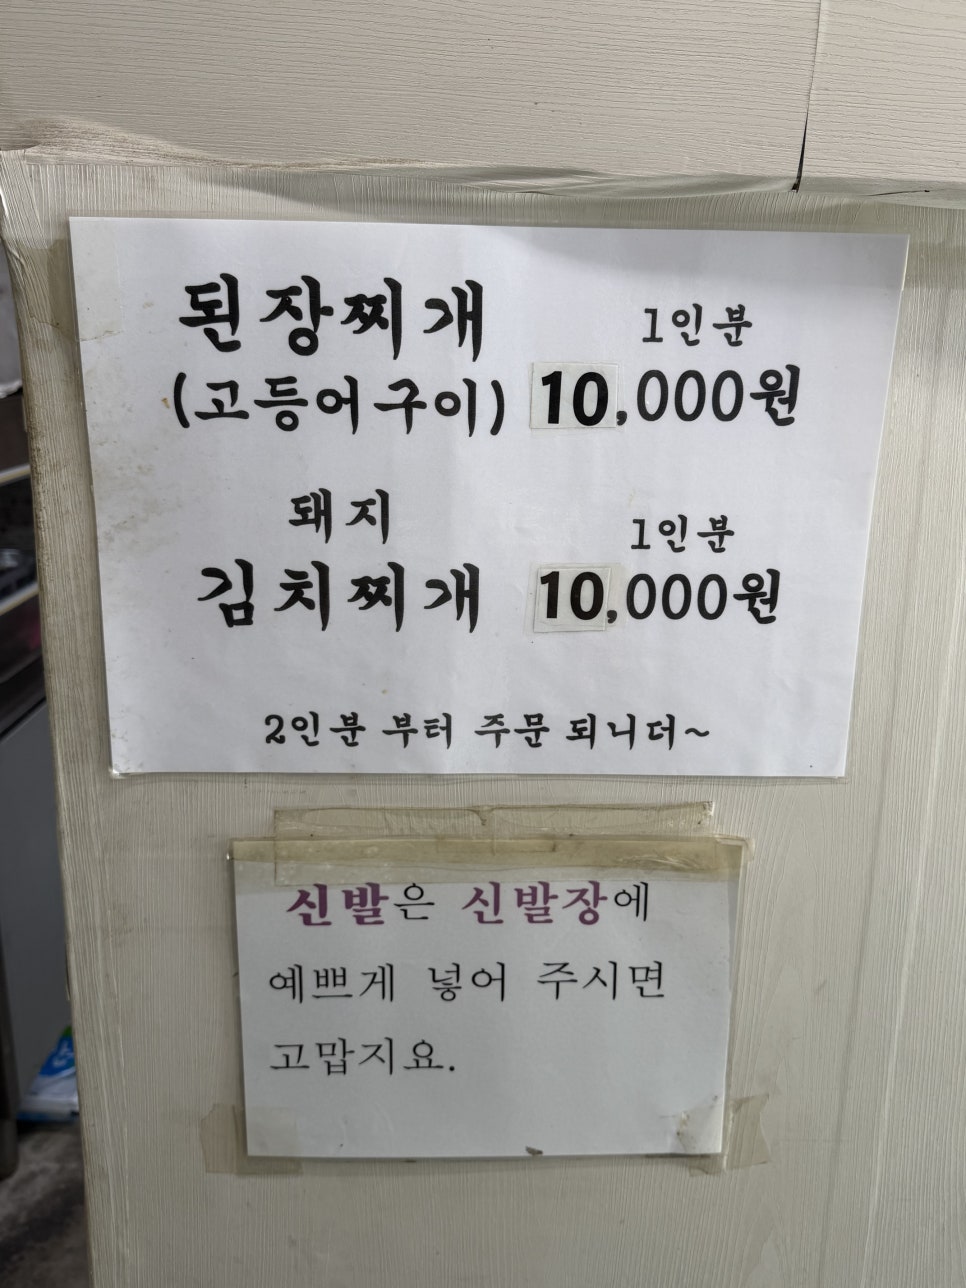 된장찌개 1인분
(고등어구이) 10,000원
돼지 1인분
김치찌개 10,000원
2인분 부터 주문 되니더~
신발은 신발장에
예쁘게 넣어 주시면
고맙지요.